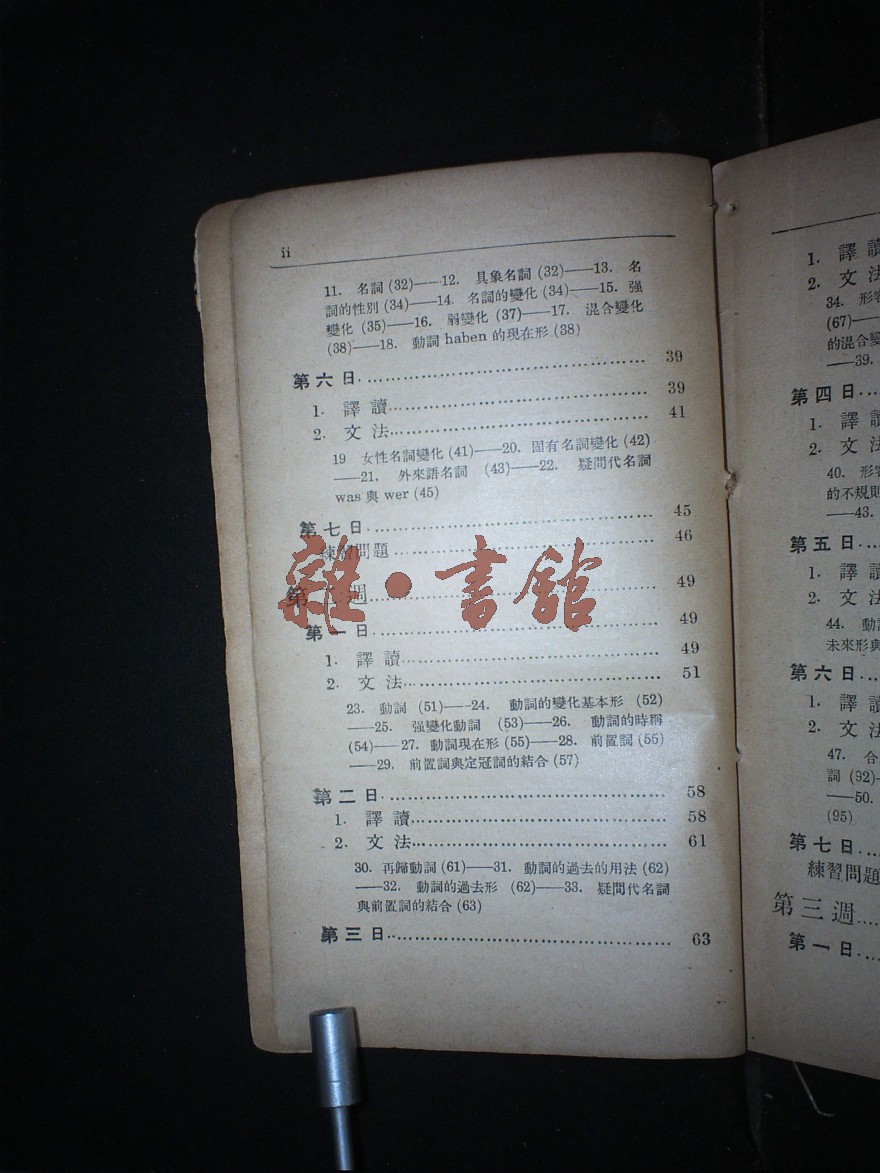 ii
11. 名詞 (32)——12. 具象名詞 (32)——13. 名
詞的性別 (34)——14. 名詞的變化 (34)——15. 强
變化 (35)——16. 弱變化 (37)——17. 混合變化
(38)——18. 動詞 haben 的現在形 (38)
第六日 39
1. 譯讀 39
2. 文法 41
19 女性名詞變化 (41)——20. 固有名詞變化 (42)
——21. 外來語名詞 (43)——22. 疑問代名詞
was 與 wer (45)
第七日 45
練習問題 46
第二週 49
雜·書館
第一日 49
1. 譯讀 49
2. 文法 51
23. 動詞 (51)——24. 動詞的變化基本形 (52)
——25. 强變化動詞 (53)——26. 動詞的時稱
(54)——27. 動詞現在形 (55)——28. 前置詞 (55)
——29. 前置詞與定冠詞的結合 (57)
第二日 58
1. 譯讀 58
2. 文法 61
30. 再歸動詞 (61)——31. 動詞的過去的用法 (62)
——32. 動詞的過去形 (62)——33. 疑問代名詞
與前置詞的結合 (63)
第三日 63
1. 譯讀
2. 文法
34. 形容
(67)——
的混合變
——39.
第四日
1. 譯讀
2. 文法
40. 形容
的不規則
——43.
第五日
1. 譯讀
2. 文法
44. 動詞
未來形與
第六日
1. 譯讀
2. 文法
47. 合
詞 (92)—
——50.
(95)
第七日
練習問題
第三週
第一日